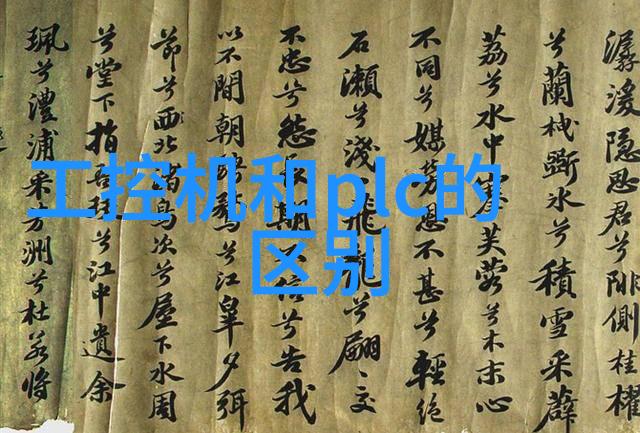 工控机和plc的
区别
潺湲隐思君兮陫側桂櫂
兮蘭枻斲水兮積雪采薜
荔兮水中搴芙蓉兮木末心
不同兮媒勞恩不甚兮輕絶
石瀬兮淺飛龍兮翩〻交
不忠兮怨期不信兮告我
以不閒朝騁騖兮江皋夕弭
節兮北渚鳥次兮屋下水周
兮堂下捐兮江中遺余
珮兮澧浦采芳洲兮杜若将